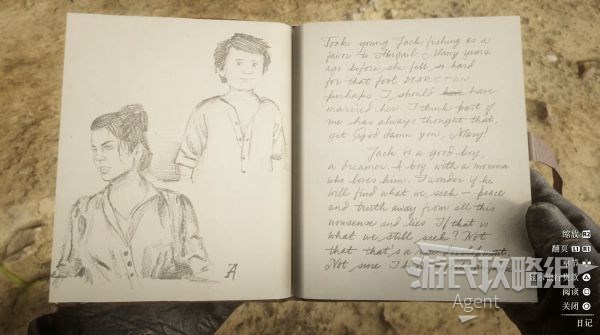 A
Took young Jack fishing as a
favor to Abigail. Many years
ago before she fell so hard
for that fool MARSTON,
perhaps I should have have
married her. I think part of
me has always thought that,
yet God damn you, Mary!
Jack is a good boy,
a dreamer. A boy with a momma
who loves him. I wonder if he
will find what we seek — peace
and truth away from all this
nonsense and lies. If that is
what we still seek? Not
that that's a
Not sure I
游民攻略组
Agent
缩放 R2
翻页 L1 R1
阅读
关闭
日记